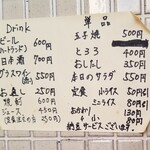 Drink
ビール 600円
(ハートランド)
日本酒 700円
グラスワイン 550円
(赤)
お茶 250円
焼酎 600円
ジュース 450円
単品
玉子焼 500円
とろろ 400円
おしたし 350円
本日のサラダ 550円
定食 小ライス 50円引
ミニライス 80円引
おかわり + 80円
小 50円
納豆サービスございます。